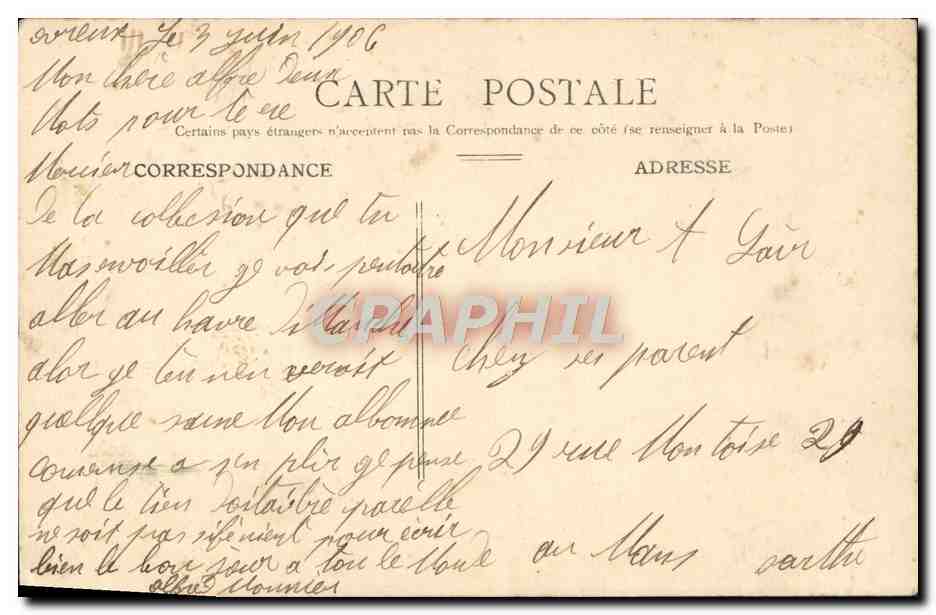 evreux le 3 juin 1906
Mon chère alfre Deux
CARTE POSTALE
Mots pour te
Certains pays étrangers n'acceptent pas la Correspondance de ce côté (se renseigner à la Poste)
CORRESPONDANCE
De la collesion que tu
Mas envoiller ge vais peutaitre
aller au havre Dimanche
alor ge t'en veroit
quelque saine Mon albomme
comense a s'en plir ge pense
que le tien doitaitre parelle
ne soit pas pour écrir
bien le bon soeur a tou le Monde
alfred Monnier
ADRESSE
Monsieur A
Chez ses parent
29 rue Montoise 29
au Mans sarthe
CPAPHIL